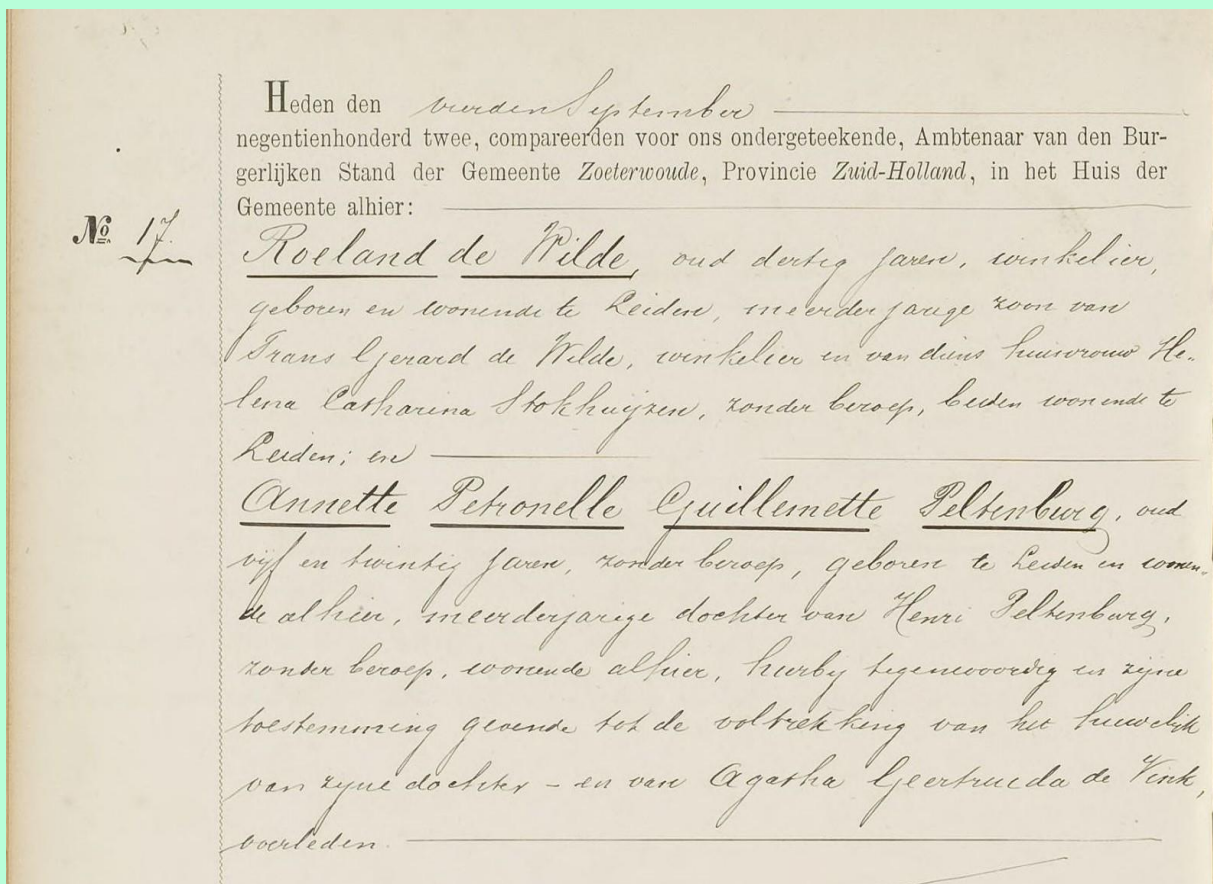 Heden den vierden September
negentienhonderd twee, compareerden voor ons ondergeteekende, Ambtenaar van den Bur-
gerlijken Stand der Gemeente Zoeterwoude, Provincie Zuid-Holland, in het Huis der
Gemeente alhier:
No. 17.
Roeland de Wilde, oud dertig jaren, winkelier,
geboren en wonende te Leiden, meerderjarige zoon van
Frans Gerard de Wilde, winkelier en van diens huisvrouw He-
lena Catharina Stokhuijzen, zonder beroep, beiden wonende te
Leiden; en
Annette Petronelle Guillemette Peltenburg, oud
vijf en twintig jaren, zonder beroep, geboren te Leiden en wonen-
de alhier, meerderjarige dochter van Henri Peltenburg,
zonder beroep, wonende alhier, hierby tegenwoordig en zyne
toestemming gevende tot de voltrekking van het huwelijk
van zyne dochter – en van Agatha Geertruida de Vink,
overleden.